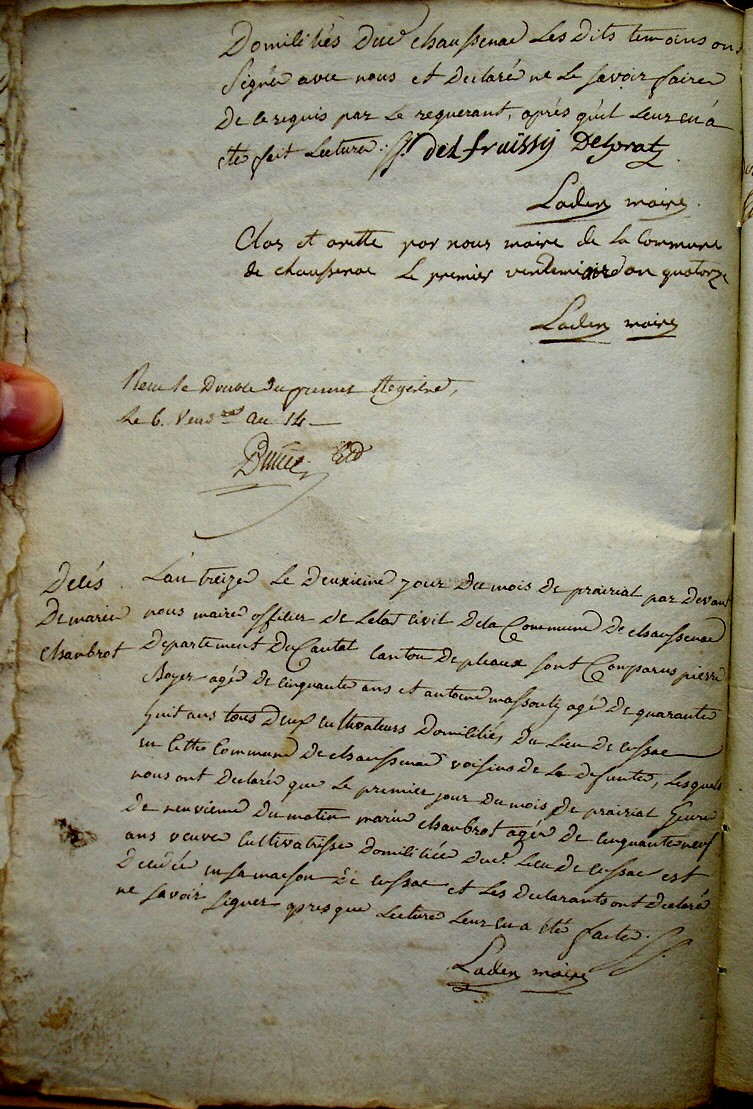 Domiliés dud chaussenac Les dits temoins on
signée avec nous et Declaré ne Le savoir faire
De ce requis par Le requerant, après qu'il Leur en a
été fait Lecture
delfraissy Delprat
Laden maire
Clos et arette par nous maire de la Commune
de chaussenac Le premier vendemiaire an quatorze
Laden maire
Reçu le Double du premier Registre,
Le 6. Vend.re an 14
Décés
De marie
chanbrot
L'an treize Le Deuxieme jour Du mois De prairial par Devant
nous maire officier De Letat civil De la Commune De chaussenac
Departement Du Cantal Canton De pleaux sont Comparus pierre
Boyer agéé De cinquante ans et antoine massoub agé De quarante
huit ans tous Deux cultivateurs Domiliés Du Lieu De cossac
en Cette Commune De chaussenac voisins De La Defunte, Lesquels
nous ont Declaré que Le premier jour Du mois De prairial heure
De neuvieme Du matin marie chanbrot agée De cinquante neuf
ans veuve Cultivatrisse Domiliée Dud. Lieu De cossac est
Decedée en sa maison De cossac et Les Declarants ont Declaré
ne savoir signer apres que Lecture Leur en a été faite
Laden maire